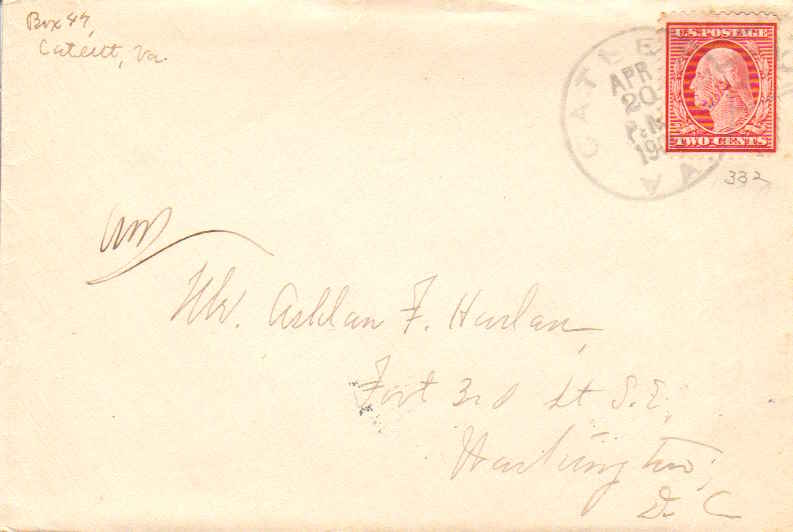 Box 47,
Catlett, Va.
U.S. POSTAGE
TWO CENTS
CATLE
APR
20
P.M
19
VA
332
Mr. F. Harlan,
3rd St S.E,
Washington,
D. C